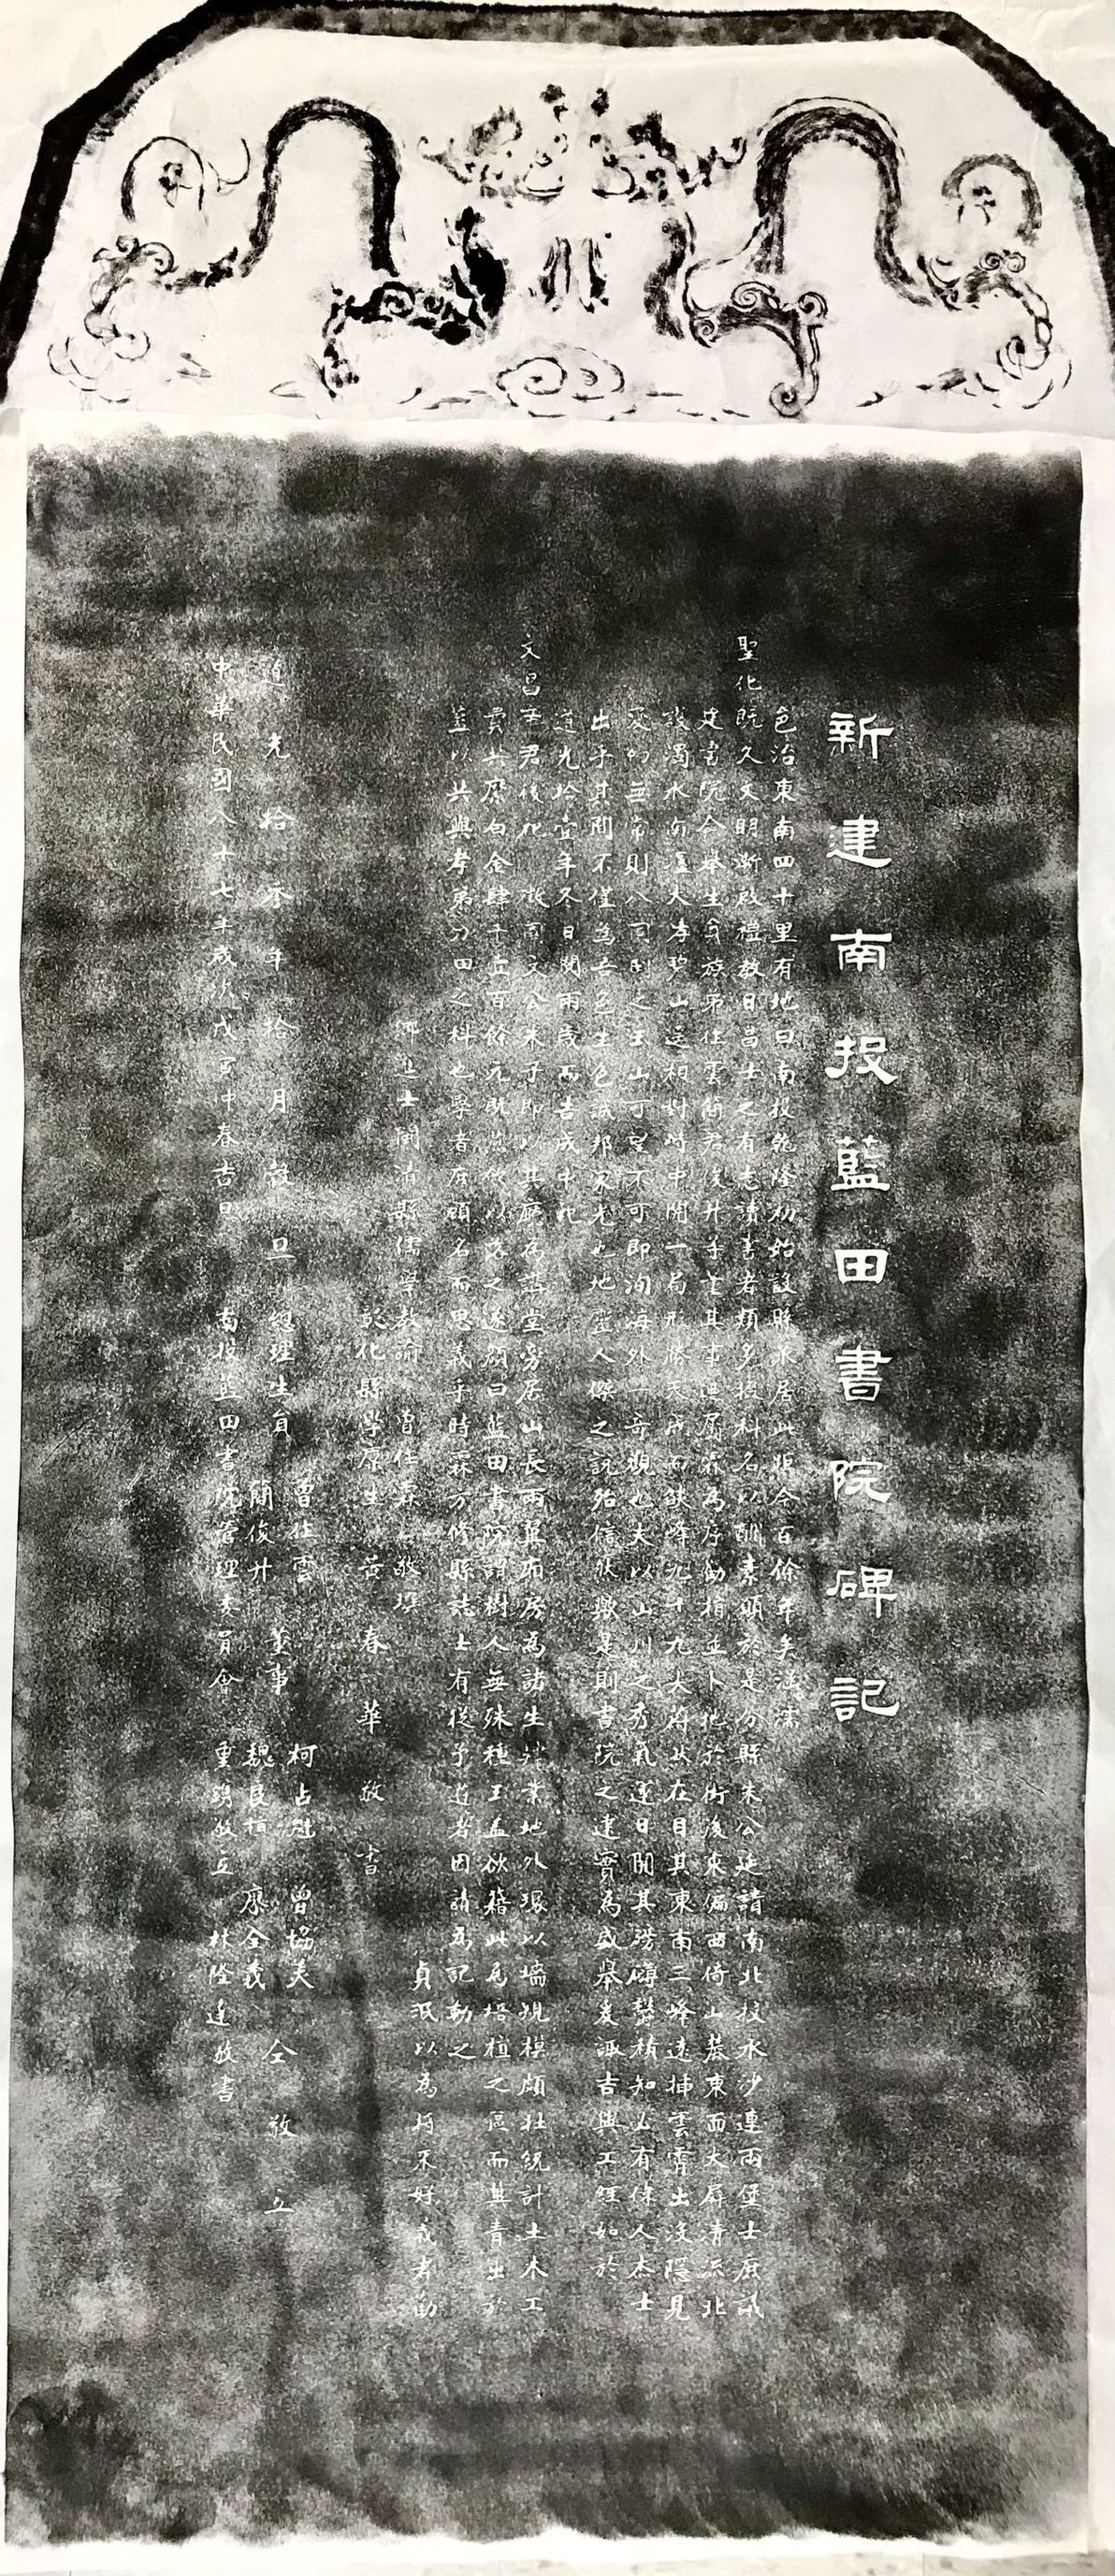 新建南投藍田書院碑記
邑治東南四十里有地曰南投乾隆初始設縣丞居此距今百餘年矣涵濡
聖化既久文明漸啟禮教日昌士之有志讀書者類多掇科名以酬素願於是分縣朱公延請南北投水沙連兩堡士庶議
建書院令舉生員族弟仕雲簡君俊升等董其事並屬霖為序勸捐並卜地於街後東偏西倚山麓東面大屏清流北
護濁水南瀍大哮碧山遙相對峙中開一局形勝天成而錢峰九十九尖蔚然在目其東南三峰遠插雲霄出沒隱見
變幻無常則八同關之玉山可望不可即洵海外一奇觀也夫以山川之秀氣運日開其滂礴鬱積知必有偉人杰士
出乎其間不僅為吾邑生色誠邦家光也地靈人傑之說殆信然歟是則書院之建實為盛舉爰諏吉興工經始於
道光拾壹年冬日閱兩歲而告成中祀
文昌帝君後祀 徽國文公朱子即以其廳為講堂旁居山長兩翼廂房為諸生肄業地外環以墻規模頗壯統計土木工
費共縻白金肆千壹百餘元既 以落之遂顏曰藍田書院謂樹人無殊種玉蓋欲藉此為培植之區而冀青出於
藍以共與孝弟力田之科也學者庶顧名而思義乎時霖方修縣誌士有從予遊者因請為記勒之
貞珉以為將來好義者勸
 進士閩清縣儒學教諭 曾作霖 敬撰
彰化縣學廩生 黃春華 敬書
道光拾參年拾月穀旦 總理生員 曾仕雲 簡俊升 董事 柯占魁 魏良植 曾協美 廖全義 仝敬立
中華民國八十七年歲次戊寅仲春吉旦 南投藍田書院管理委員會 重鐫敬立 林隆達敬書